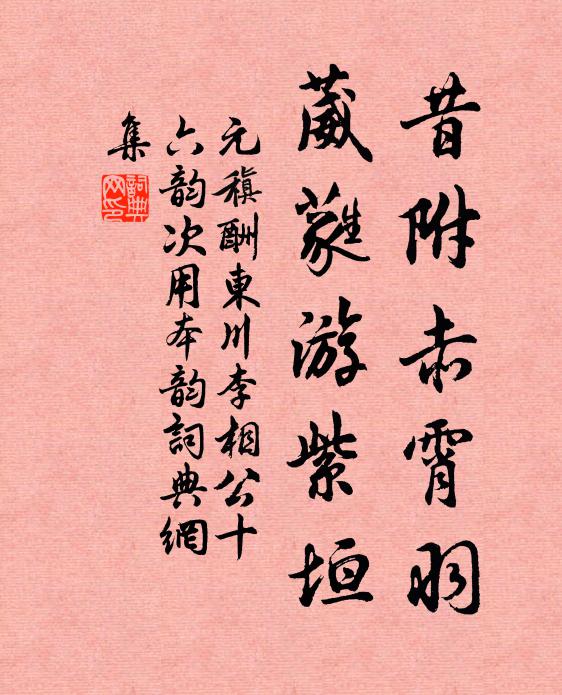 昔附赤霄羽
葳蕤游紫垣
元稹酬東川李相公十
六韵次用本韵詞典網
集
詞典
网印